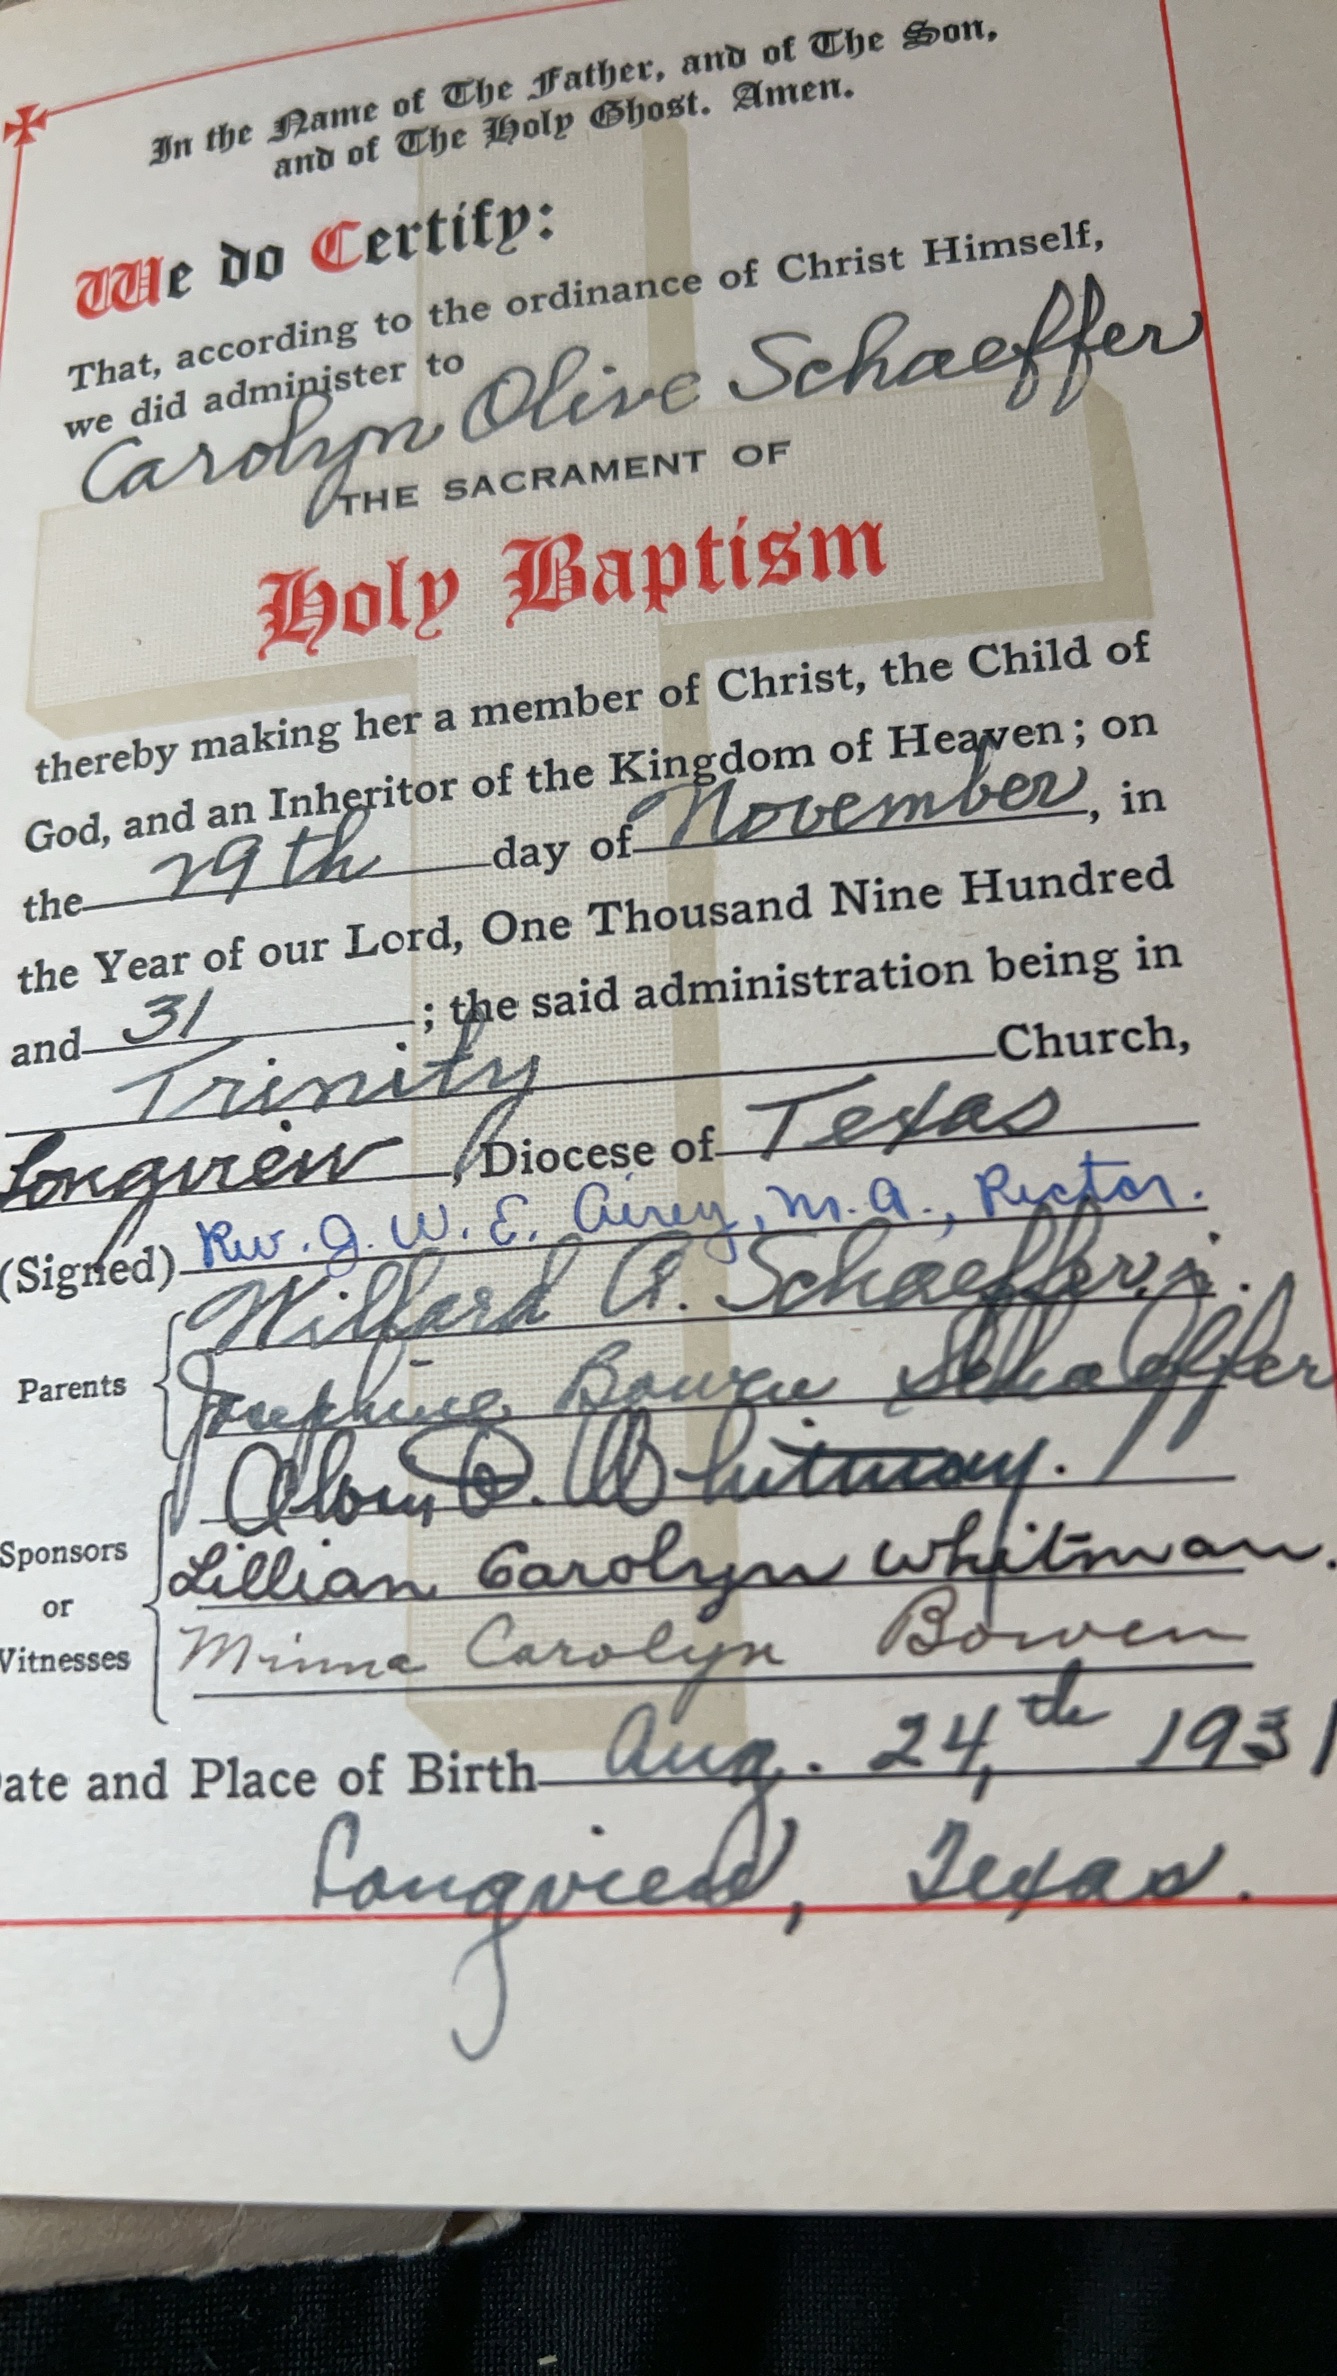 In the Name of The Father, and of The Son,
and of The Holy Ghost. Amen.
We do Certify:
That, according to the ordinance of Christ Himself,
we did administer to
Carolyn Olive Schaeffer
THE SACRAMENT OF
Holy Baptism
thereby making her a member of Christ, the Child of
God, and an Inheritor of the Kingdom of Heaven; on
the 29th day of November, in
the Year of our Lord, One Thousand Nine Hundred
and 31; the said administration being in
Trinity Church,
Longview, Diocese of Texas
(Signed) Rev. J. W. E. Airey, M.A., Rector.
Willard A. Schaeffer, Jr.
Parents Josephine Bowen Schaeffer
D. Whitman.
Sponsors or Witnesses Lillian Carolyn Whitman.
Minna Carolyn Bowen
ate and Place of Birth Aug. 24,th 1931
Longview, Texas.